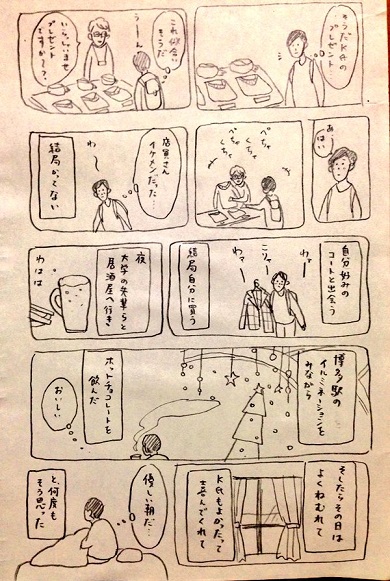 そうだK氏の
プレゼント…
これ似合い
そうだ
うーん
いらっしゃいませ
プレゼント
ですか〜？
あ…
はい
ぺちゃ
くちゃ
ぺちゃ
くちゃ
店員さん
イケメンだった…
わー
結局かってない
自分好みの
コートと出会う
わァー
こりゃ
わァー
結局自分に買う
夜
大学の先輩らと
居酒屋へ行き
わはは
博多駅の
イルミネーションを
みながら
ホットチョコレートを
飲んだ
おいしい
そしたらその日は
よくねむれて
K氏もよかったって
喜んでくれて
優しい朝だ…
と、何度も
そう思った